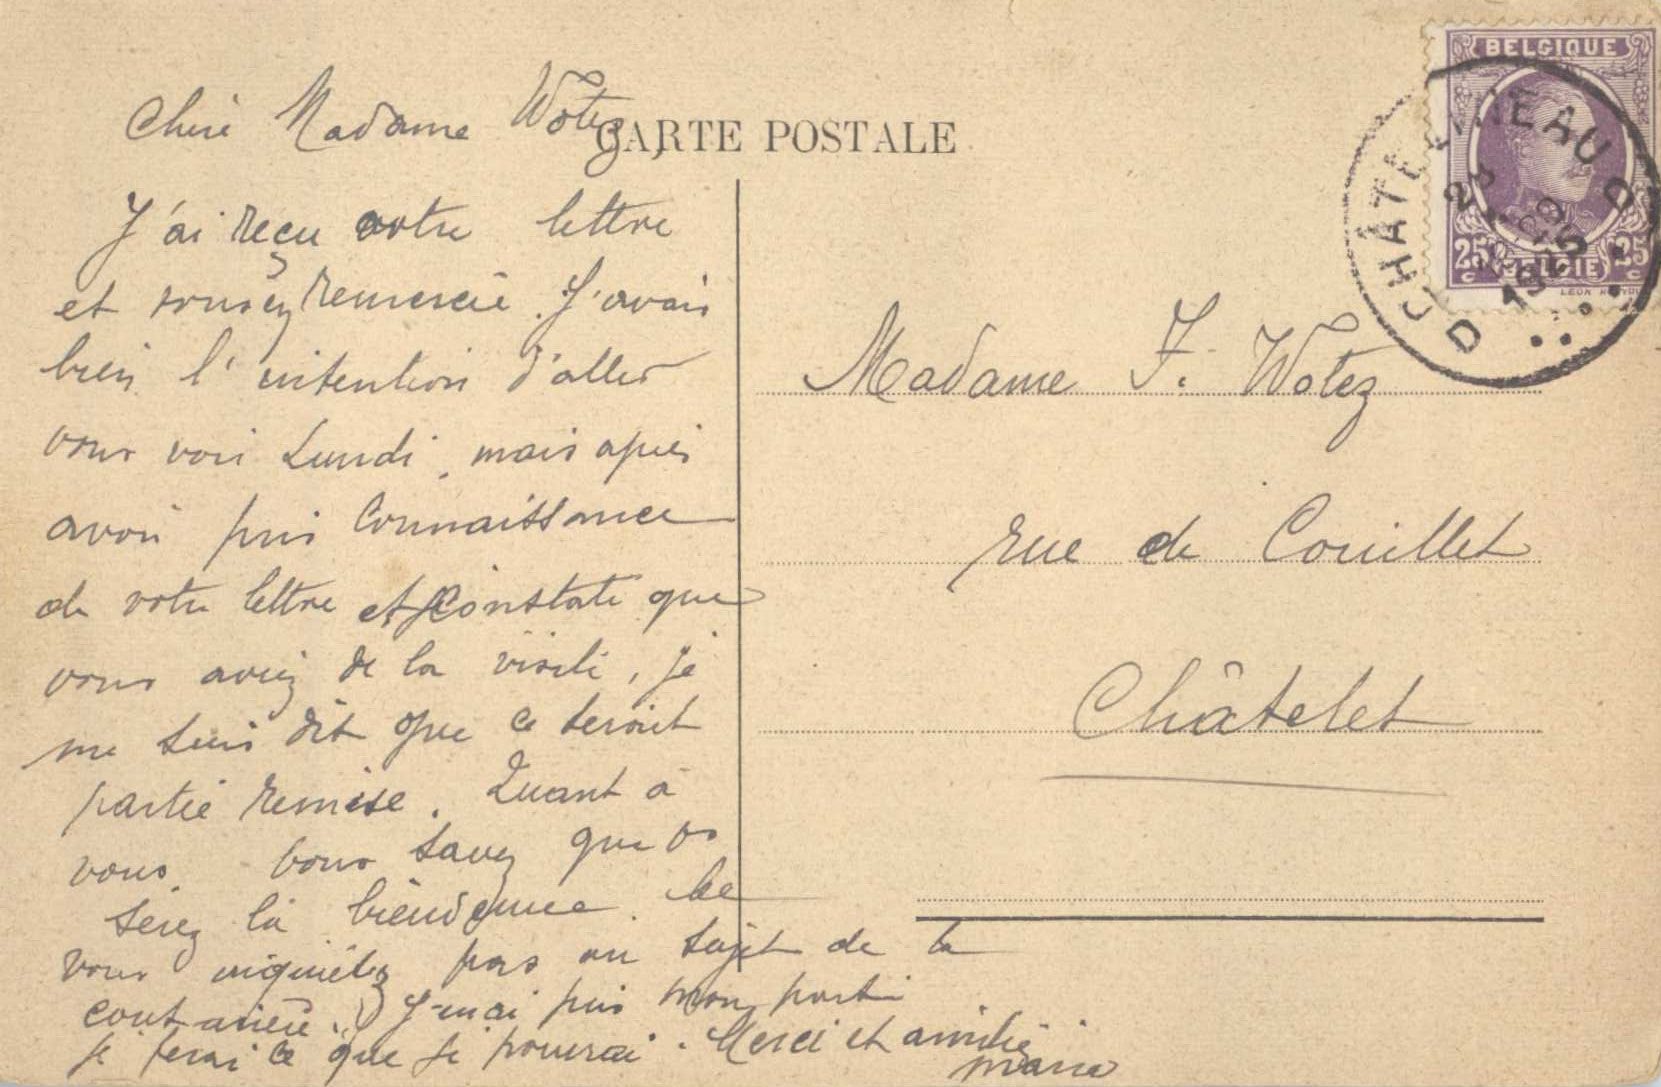 CARTE POSTALE
Chère Madame Wotez,
J'ai reçu votre lettre
et vous en remercie. J'avais
bien l'intention d'aller
vous voir Lundi, mais après
avoir pris connaissance
de votre lettre et constaté que
vous aviez de la visite, je
me suis dit que ce serait
partie remise. Quant à
vous, vous savez que vs
serez la bienvenue. Ne
vous inquiétez pas au sujet de la
couturière. J'en ai pris mon parti
je ferai ce que je pourrai. Merci et amitié
Marie
Madame F. Wotez
rue de Couillet
Châtelet
BELGIQUE
25 c BELGIE 25 c
CHATELINEAU
D D
1925